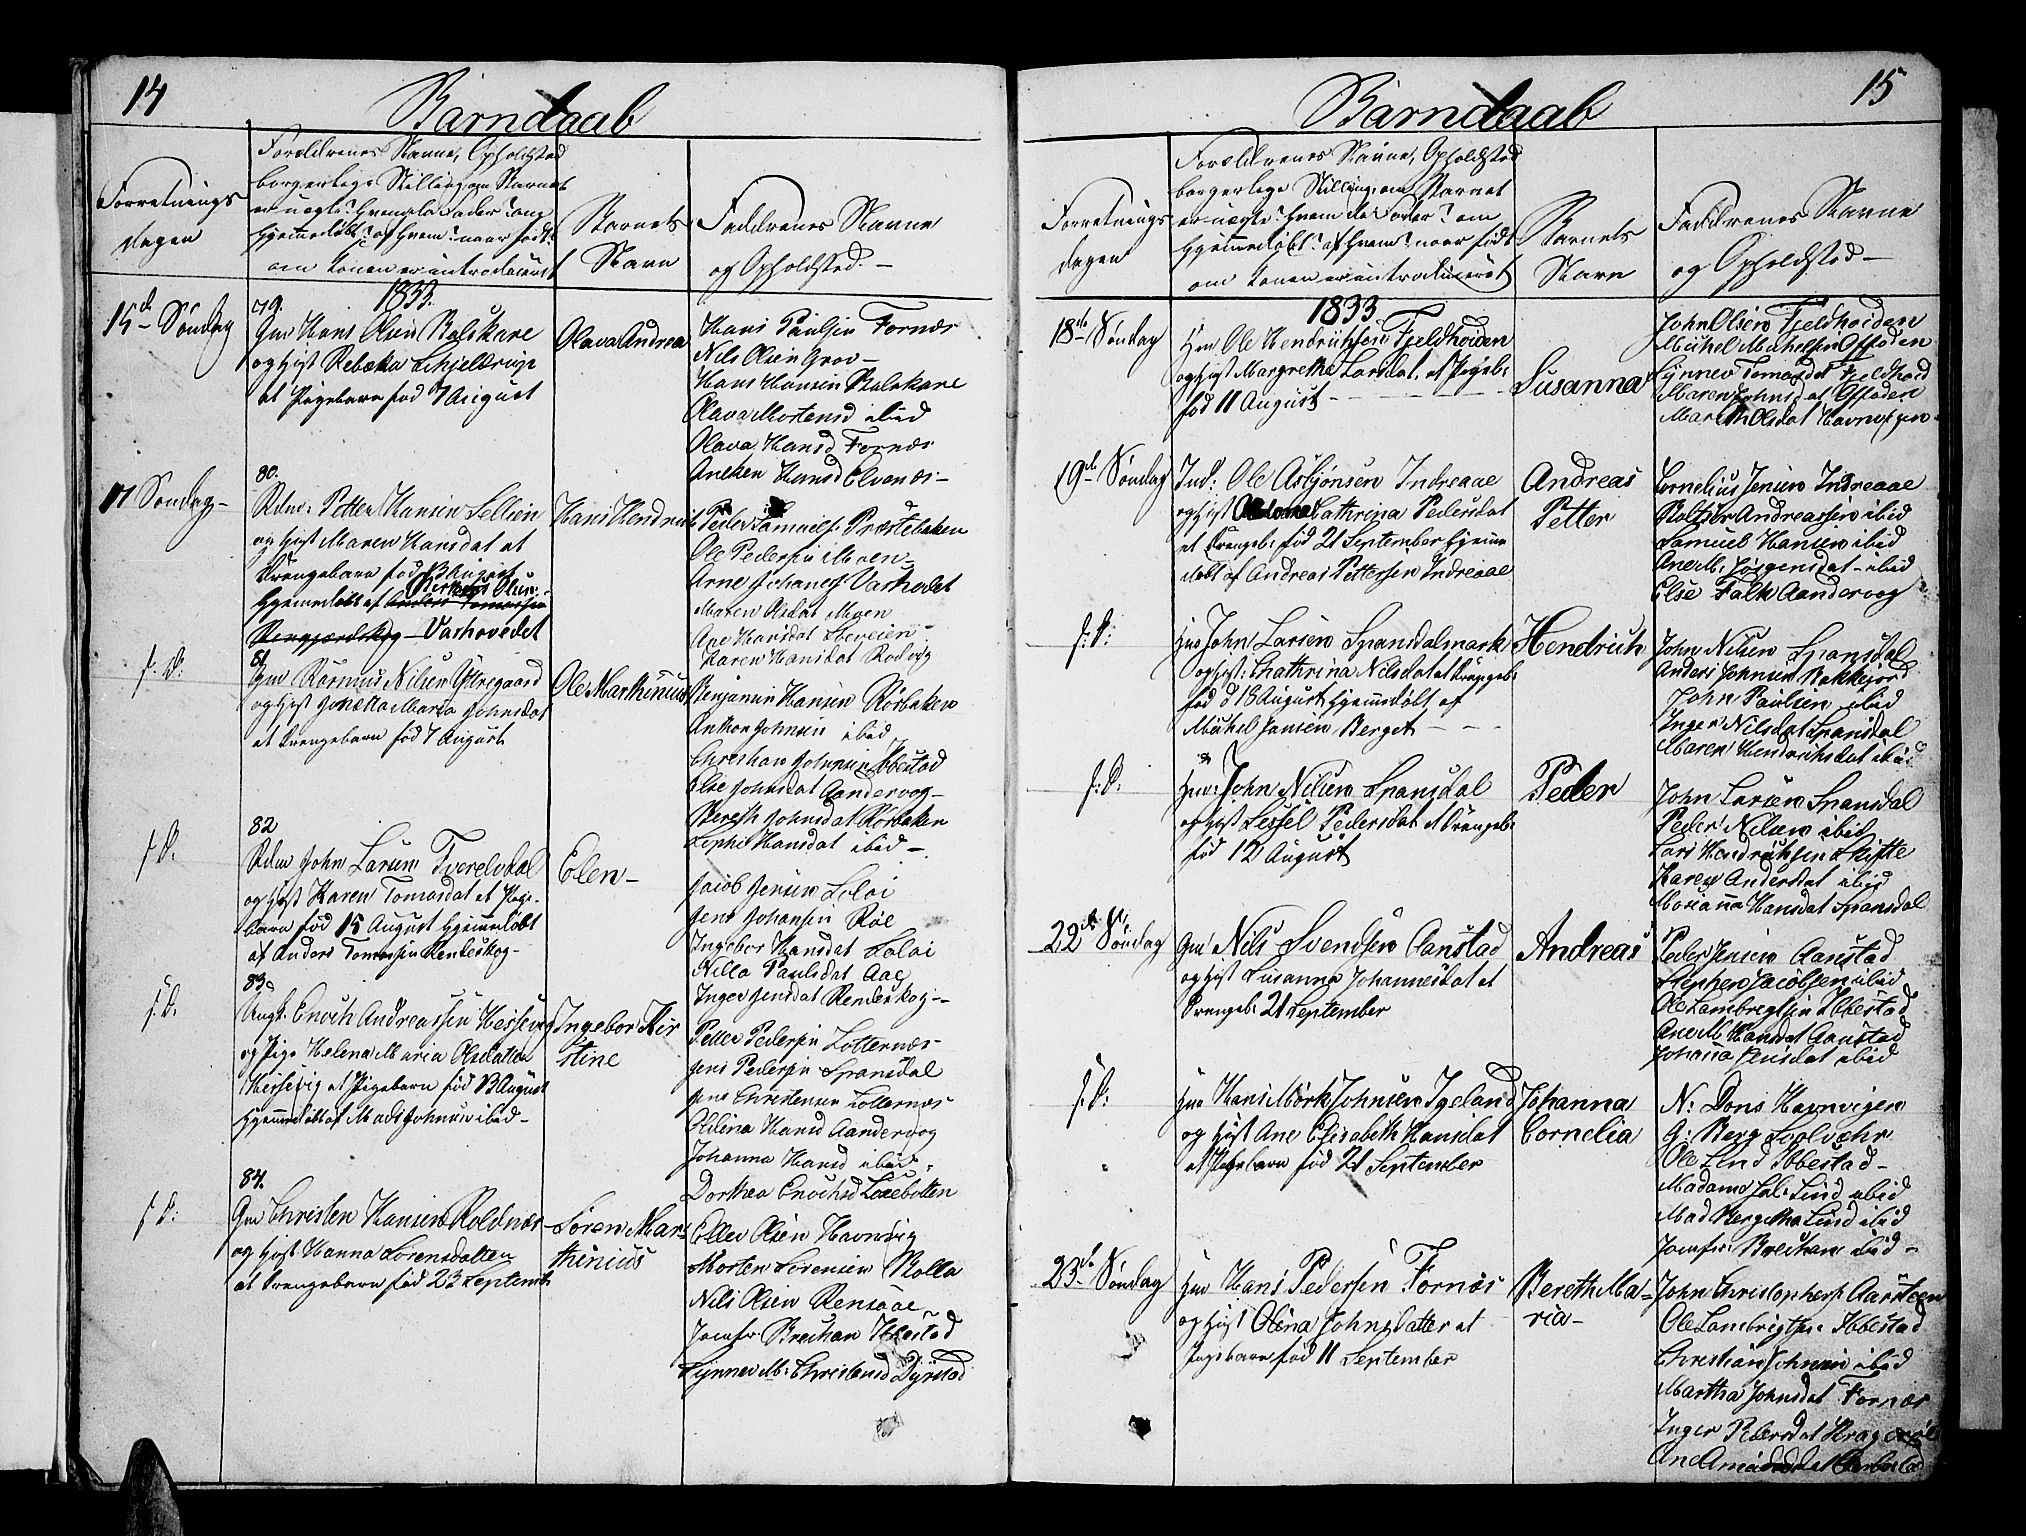 14
Barndaab
Forretnings
dagen
Forældrenes Navne, Opholdsted
borgerlige Stilling, om Barnet
er uægte? hvem der Fader? om
hjemmedøbt? af hvem? naar født?
om Konen er introduceret
Barnets
Navn
Faddrenes Navne
og Opholdsted.-
1833.
15de Søndag
79.
Gm Hans Olsen Balskare
og Hust Rebekka
et Pigebarn fød 7 August
Olava Andrea
Hans Paulsen Fornæs
Nils Olsen Grov-
Hans Hansen Balskare
Olava Mortensd ibid
Olava Hansd Fornæs
Aneken Hansd Elvenæs-
17 Søndag-
80.
Petter Hansen Sellien
og Hust Maren Hansdat et
Drengebarn fød 13 August
Hjemmedøbt af Anders Tomassen
Renjærdskog - Varhovedet
Hans Hendrich
Peder Samuels Præstebaken
Ole Pedersen Moen-
Arne Johanes Varhodet
Maren Olsdat Moen
Ane Hansdat
Karen Hansdat Rodvig
f: D:
81.
Gm Rasmus Nilsen Ytregaard
og Hust Maria Johnsdat
et Drengebarn fød 7 August
Ole Marthinus
Benjamin Hansen Rørbaken
Anthon Johnsen ibid
Christian Johnsen Ibestad
Else Johnsdat Aandervog-
Bereth Johnsdat Rørbaken
Hansdat ibid-
f D:
82
John Larsen Tverelvdal
og Hust Karen Tomasdat et Pige-
barn fød 15 August Hjemmedøbt
af Anders Tomassen Renderskog-
Elen-
Jacob Jensen Loloi
Jens Johansen Røe
Ingebor Hansdat Loloi
Nilla Paulsdat Aae
Inger Jensdat Renderskog-
f. D.
83.
Ungk. Enoch Andreassen Hessevig
og Pige Helena Maria Olsdatter
Hessevig et Pigebarn fød 13 August
Hjemmedøbt af Mads Johnsen ibid-
Ingebor Kir
stine
Petter Pedersen Lotternæs-
Jens Pedersen Spansdal
Jens Christensen Lotternæs
Oldina Hansd Aandervog
Johanna Hansd ibid-
Dorthea Enochsd Løxebotten
f D:
84.
Gm Christen Hansen Roldnæs
og Hust Hanna Sørensdatter
et Drengebarn fød 23 Septemb
Søren Mar-
thinius
Eller Olsen Havnvig
Morten Sørensen Rolla
Nils Olsen Rensaae
Jomfr: Brechan Ibestad
Synnev M: Christensd Dyrstad
15
Barndaab
Forretnings
dagen
Forældrenes Navne, Opholdsted
borgerlige Stilling, om Barnet
er uægte? hvem der Fader? om
hjemmedøbt? af hvem? naar født
om Konen er introduceret
Barnets
Navn
Faddrenes Navne
og Opholdsted-
1833
18de Søndag
Hm Ole Hendrichsen Fjeldhøiden
og Hust Margrethe Larsdat. et Pigeb:
fød 11 August-
Susanna
John Olsen Fjeldhoiden
Michel Michelsen
Synnev Tomasdat Fjeldhoid
Maren Johnsdat
Mareth Olsdat Havnvigen-
19de Søndag
Ind: Ole Asbjønsen Indreaae
og Hust Cathrina Pedersdat
et Drengeb: fød 21 September hjemme
døbt af Andreas Pettersen Indreaae
Andreas
Petter
Cornelius Jensen Indreaae
Andreassen ibid
Samuel Hansen ibid
Ane M: Jørgensdat - ibid
Else Falk Aandervog
f: D:
Hm John Larsen Spansdalmark
og Hust: Chathrina Nilsdat et Drengeb:
fød d 18 August hjemmedøbt af
Michel Jensen Berget
Hendrich
John Nilsen Spansdal
Anders Johnsen Bakkejord
John Paulsen ibid
Inger Nilsdat Spansdal
Maren Hendrichsdat ibid
f: D:
Hm: John Nilsen Spansdal
og Hust Lissel Pedersdat et Drengeb:
fød 12 August
Peder
John Larsen Spansdal
Peder Nilsen ibid
Lars Hendrichsen Skifte
Karen Andersdat ibid
Marianna Hansdat Spansdal
22de Søndag
Gm Nils Svendsen Aanstad
og Hust Susanna Johannesdat et
Drengeb: 21 September
Andreas
Peder Jensen Aanstad
Stephen Jacobsen ibid
Ole Lambregtsen Ibbestad
Ane M: Hansdat Aanstad
Johanna Jensdat ibid
f: D:
Hm Hans Mørk Johnsen Igeland
og Hust Ane Elisabeth Hansdat
et Pigebarn fød 21 September
Johanna
Cornelia
N: Dons Havnvigen
G: Berg
Ole Lind Ibbestad-
Madam Lind ibid
Mad Bergetha Lind ibid
Jomfr: Brechan ibid-
23de Søndag
Hm Hans Pedersen Fornæs
og Hust Olina Johnsdatter et
Pigebarn fød 11 September
Bereth Ma-
ria-
John Christophers Aansteen
Ole Lambrigtsen Ibbestad
Christian Johnsen ibid
Martha Johnsdat Fornæs
Inger Pedersdat
Ane